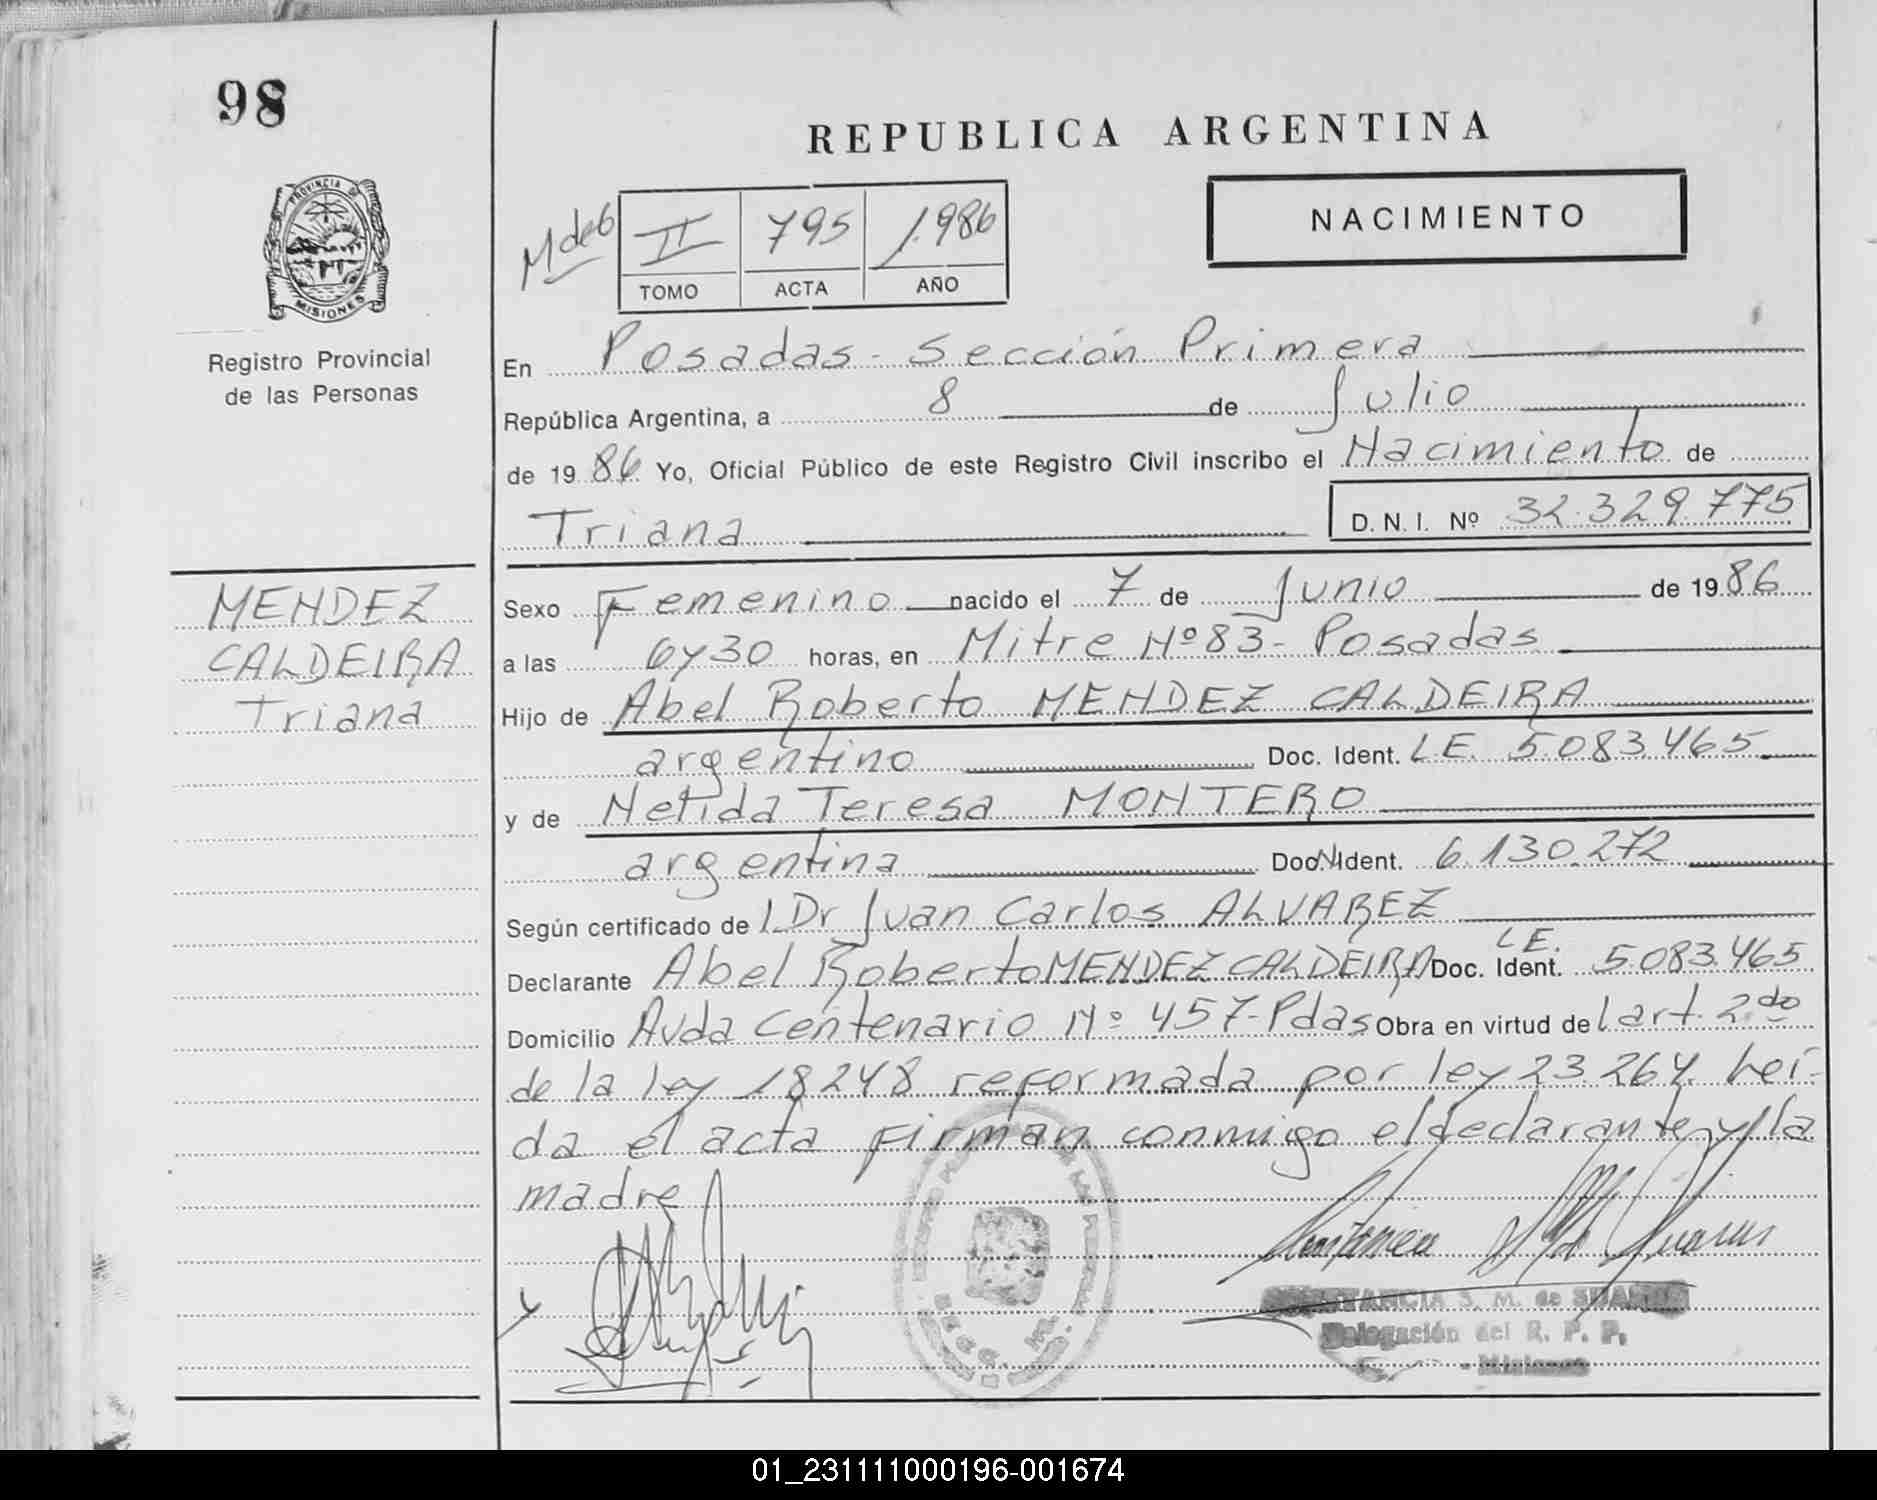 98
REPUBLICA ARGENTINA
NACIMIENTO
M de 6
II 795 1.986
TOMO ACTA AÑO
PROVINCIA DE MISIONES
Registro Provincial
de las Personas
En Posadas - Sección Primera
República Argentina, a 8 de Julio
de 1986 Yo, Oficial Público de este Registro Civil inscribo el Nacimiento de
Triana D. N. I. Nº 32.329.775
MENDEZ
CALDEIRA
Triana
Sexo Femenino nacido el 7 de Junio de 1986
a las 6 y 30 horas, en Mitre Nº 83 - Posadas
Hijo de Abel Roberto MENDEZ CALDEIRA
argentino Doc. Ident. L.E. 5.083.465
y de Nelida Teresa MONTERO
argentina Doc. Ident. 6.130.272
Según certificado de l Dr Juan Carlos ALVAREZ
Declarante Abel Roberto MENDEZ CALDEIRA Doc. Ident. L.E. 5.083.465
Domicilio Avda Centenario Nº 457-Pdas Obra en virtud del art. 2do
de la ley 18248 reformada por ley 23.264. Leí-
da el acta firman conmigo el declarante y la
madre
CONSTANCIA S. M. de SUAREZ
Delegación del R. P. P.
- Misiones
01_231111000196-001674